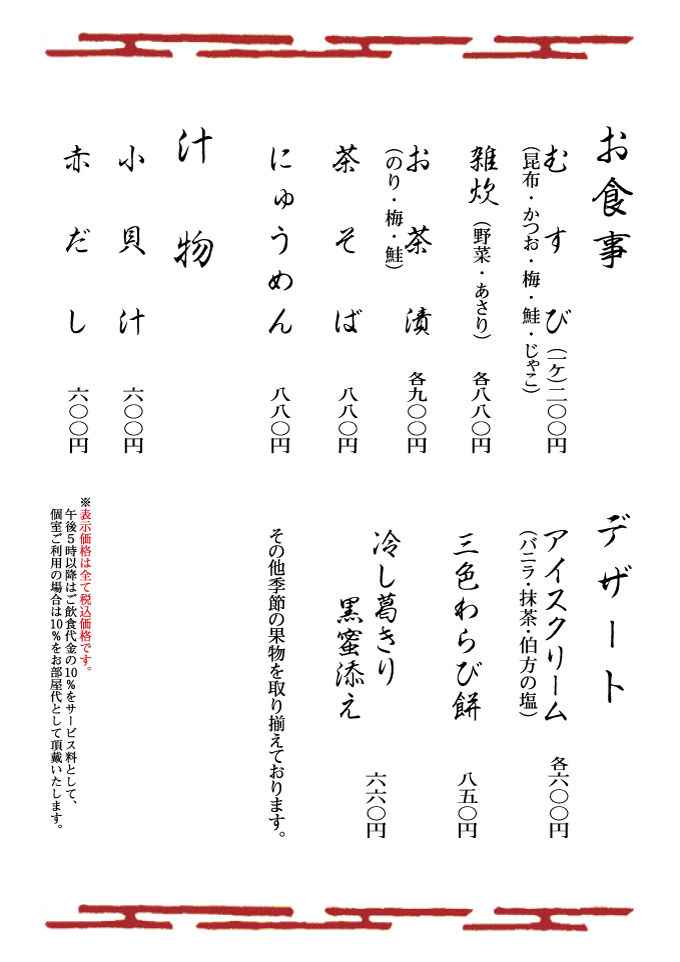 お食事
むすび（一ケ）二〇〇円
（昆布・かつお・梅・鮭・じゃこ）
雑炊（野菜・あさり）各八八〇円
お茶漬 各九〇〇円
（のり・梅・鮭）
茶そば 八八〇円
にゅうめん 八八〇円
汁物
小貝汁 六〇〇円
赤だし 六〇〇円
デザート
アイスクリーム 各六〇〇円
（バニラ・抹茶・伯方の塩）
三色わらび餅 八五〇円
冷し葛きり
黒蜜添え 六六〇円
その他季節の果物を取り揃えております。
※表示価格は全て税込価格です。
午後５時以降はご飲食代金の10％をサービス料として、
個室ご利用の場合は10％をお部屋代として頂戴いたします。